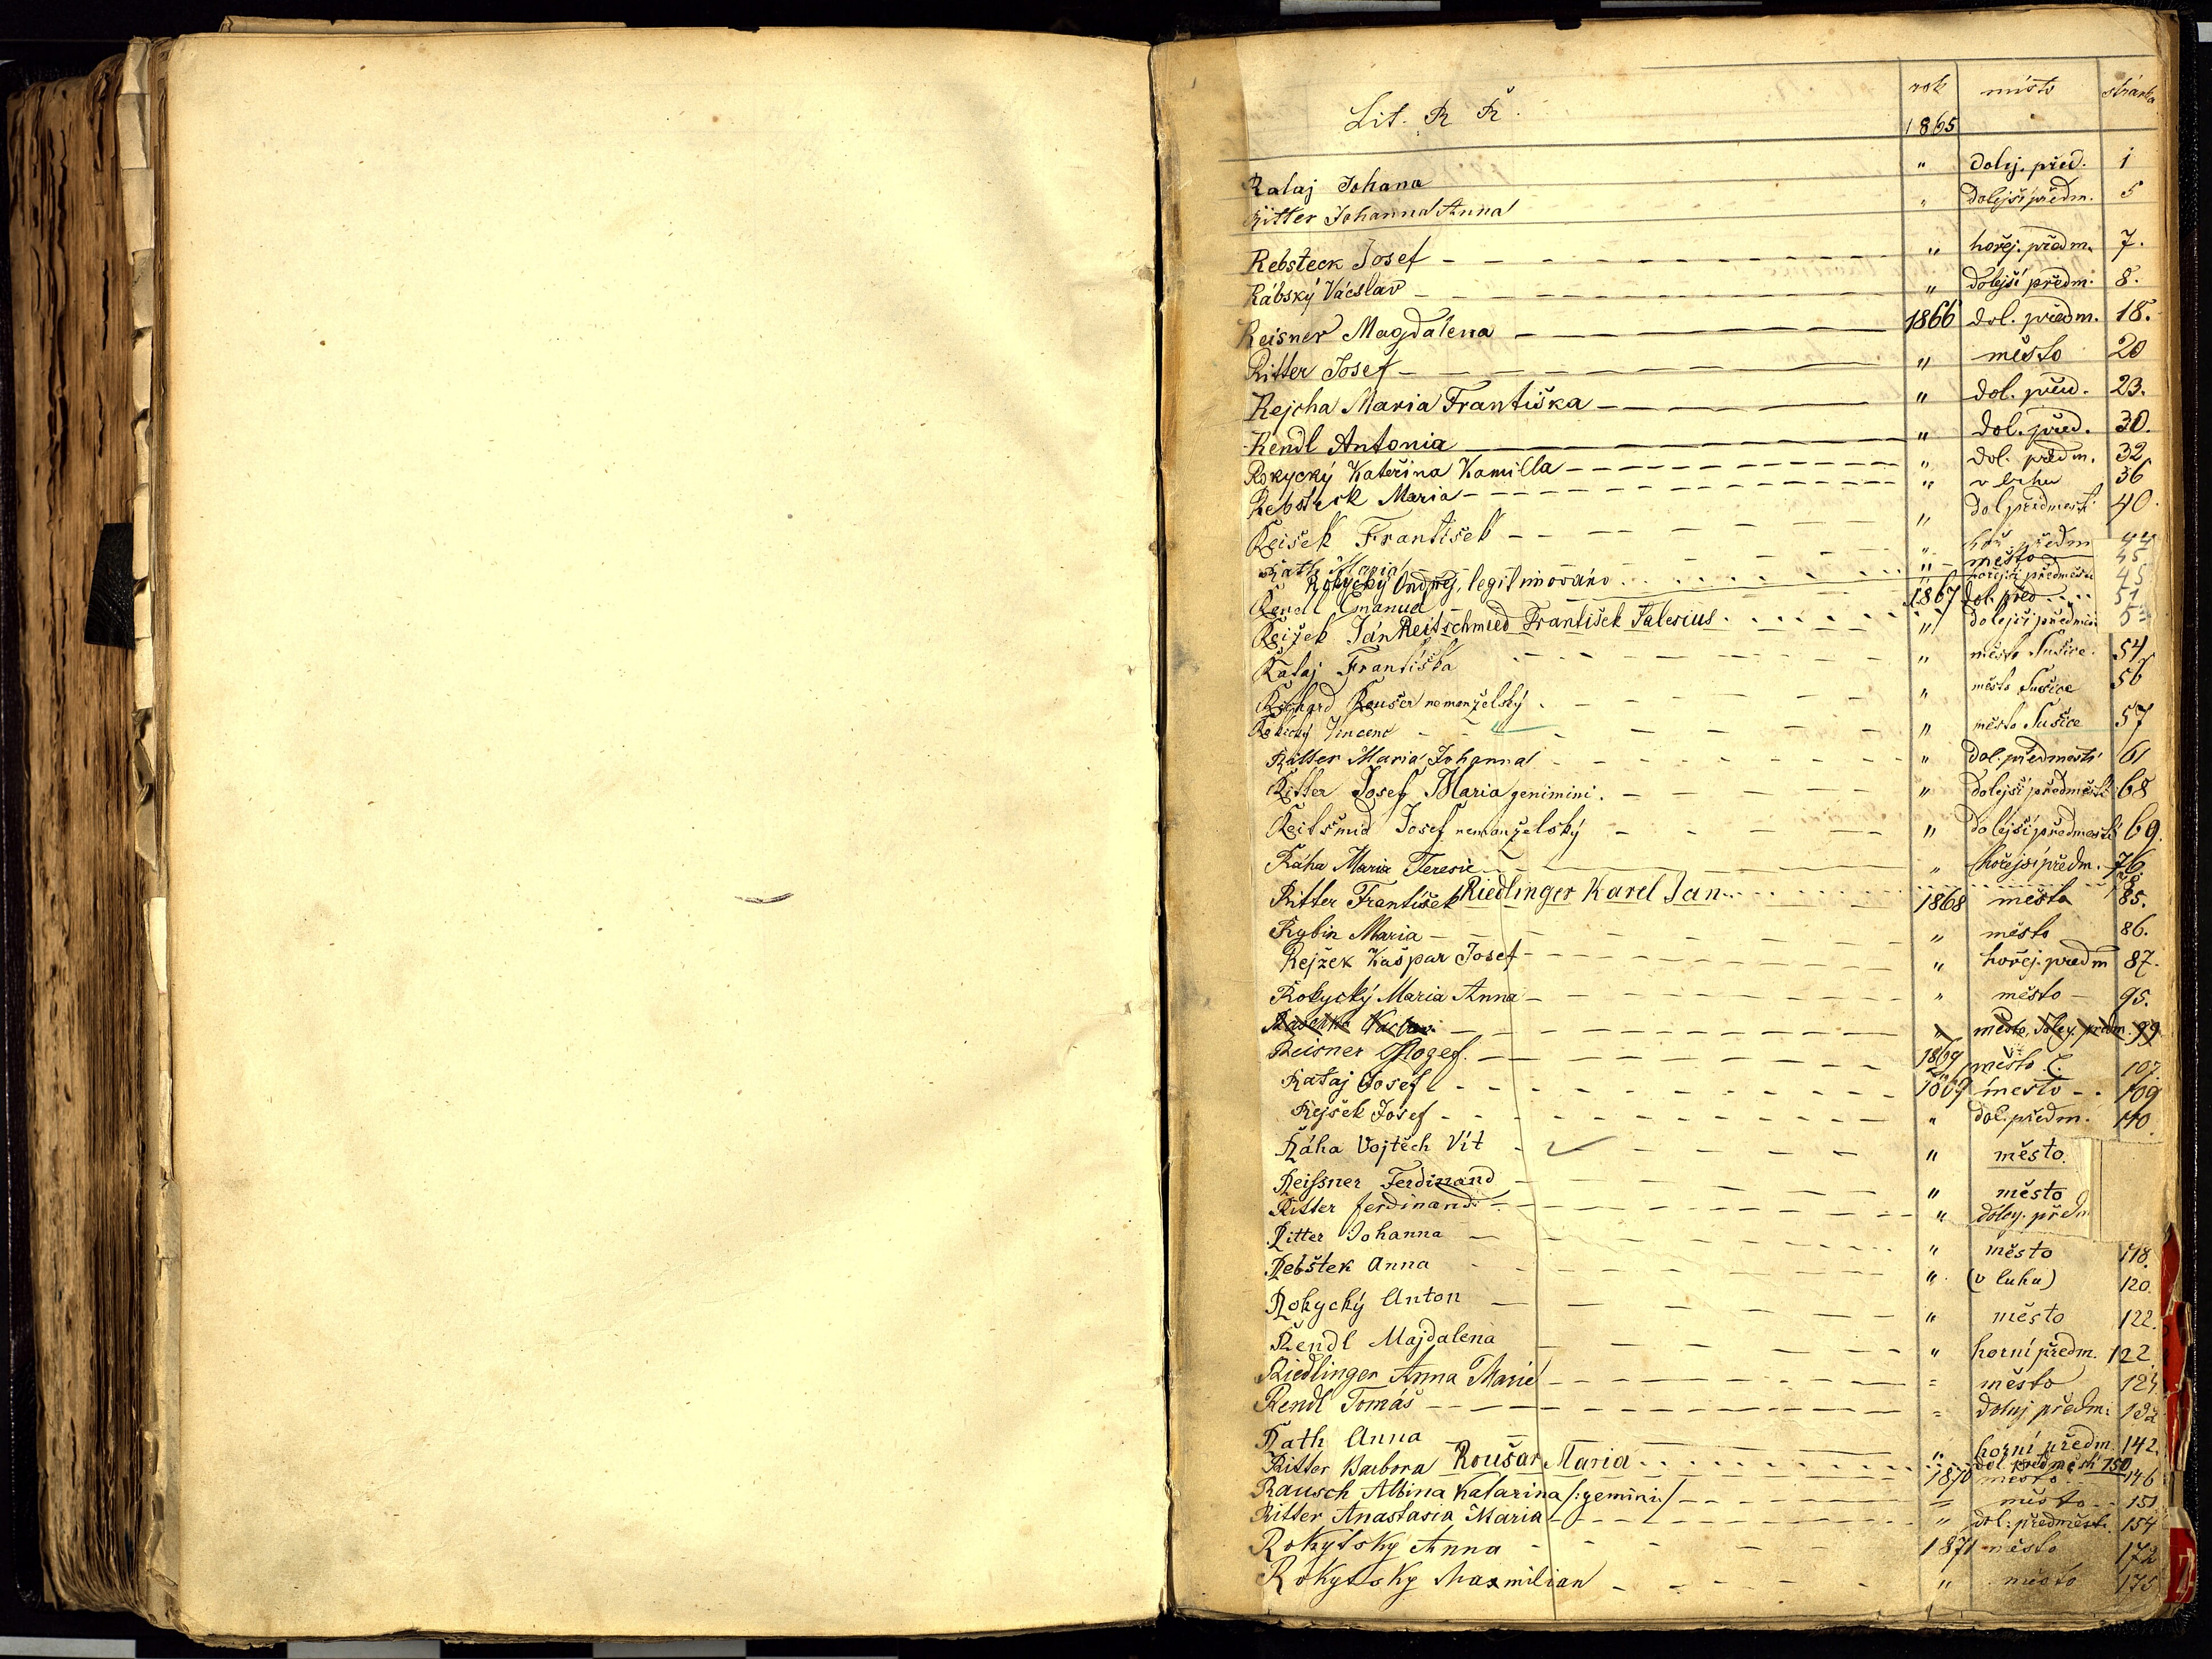 Lit. R Ř. rok místo stránka
1865
Rataj Johana " dolej. před. 1
Ritter Johanna Anna " dolejší předm. 5
Rebsteck Josef " hořej. předm. 7.
Rábský Václav " dolejší předm. 8.
Reisner Magdalena 1866 dol. předm. 18.
Ritter Josef " město 20
Rejcha Maria Františka " dol. před. 23.
Rendl Antonia " dol. před. 30.
Rokycký Kateřina Kamilla " dol. předm. 32
Rebsteck Maria " v luhu 36
Reišek František " dol předmestí 40.
Rath Maria " hoř předm 44
Rokycký Ondřej, legitimováno " město 45
hořejší předměstí 45
Rendl Emanuel 1867 dol. před 51
Reižek Ján Reitschmied František Salesius " dolejší předměs
Rataj Františka " město Sušice. 54
Richard Reušer nemanželský " město Sušice 56
Vincenc " město Sušice 57
Ritter Maria Johanna " dol. předmestí 61
Ritter Josef, Maria genimini. " dolejší předměstí 68
Reitšmid Josef nemanželský " dolejší předmestí 69.
Raha Maria Teresie " hořejsí předm. 76.
Ritter František Riedlinger Karel Jan 1868 město 85.
Rybin Maria " město 86.
Rejzek Kašpar Josef " hořej. předm 87.
Rokycký Maria Anna " město 95.
město, dolej. předm. 99
Reisner Josef. 1869 město Č. 107.
Rataj Josef 1869 město 109
Rejšek Josef " dol. předm. 110
Ráha Vojtěch Vít " město.
Reissner Ferdinand " město
Ritter ferdinand " dolej. předm
Ritter Johanna " město 118.
Rebštek Anna " (v luhu) 120.
Rokycký Anton " město 122.
Rendl Majdalena " horní předm. 122
Riedlinger Anna Marie = město 124
Rendl Tomáš = dolej předm. 132
Rath Anna " horní předm. 142.
Ritter Barbora Roušar Maria dol. předměstí 150
1870 město 146
Rausch Albina Katarina /:gemini:/ = město 151
Ritter Anastasia Maria " dol. předměstí 154
Rokytsky Anna 1871 město 172
Rokytsky Maxmilian " město 175